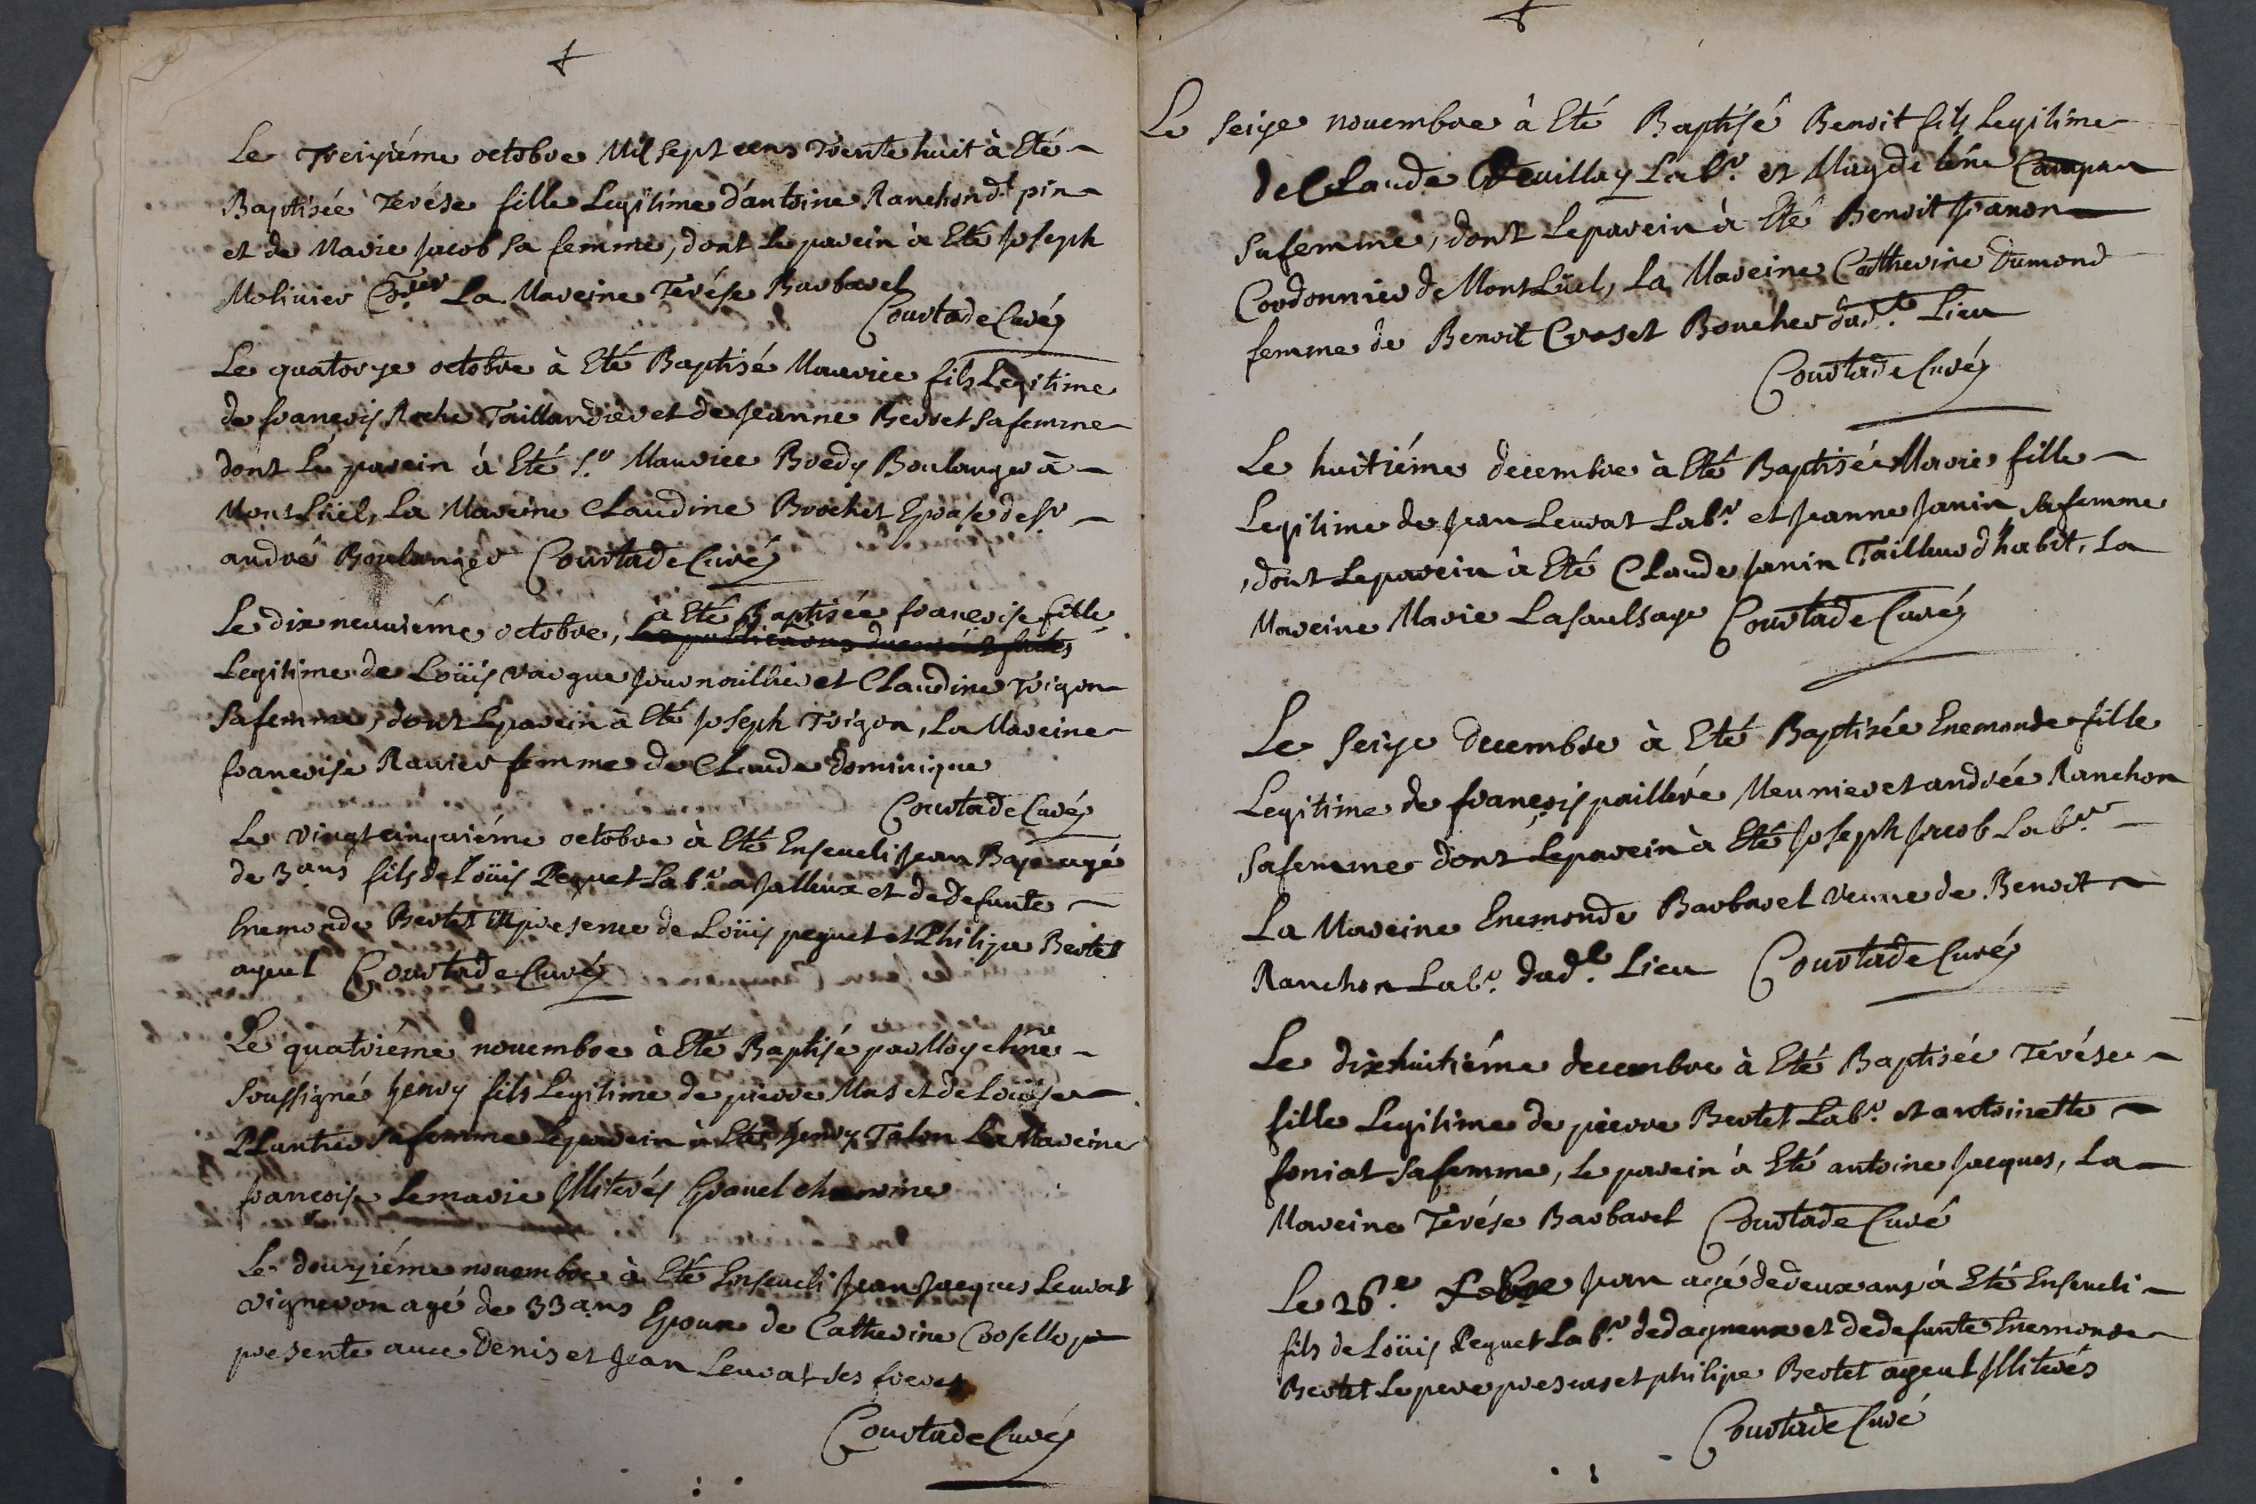 Le Treiziéme octobre Mil sept cens Trente huit à Eté
Baptisée Terése fille Legitime d'antoine Ranchon dt pin
et de Marie Jacob sa femme, dont Le parein à Eté Joseph
Molinier La Mareine Terése Barbarel
Courtade Curé
Le quatorze octobre à Eté Baptisé Maurice fils Legitime
de françois Roche Taillandier et de Jeanne Berret sa femme
dont Le parein à Eté Sr Maurice Bredy Boulanger à
MontLüel, La Mareine Claudine Brochet Epouse de Sr
andré Boulanger Courtade Curé
Le dix neuviéme octobre, à Eté Baptisée françoise fille
Legitime de Loüis vargue Journaillier et Claudine Trigon
sa femme, dont Le parein à Eté Joseph Trigon, La Mareine
françoise Ravier femme de Claude dominique
Courtade Curé
Le vingt cinquiéme octobre à Eté Enseveli Jean Bapt agé
de 3 ans fils de Loüis Peguet Labr. a Jailleux et de defunte
Enemonde Bertet en presence de Loüis peguet et Philipe Bertet
ayeul Courtade Curé
Le quatriéme novembre à Eté Baptisé par Moy chne
soussigné henry fils Legitime de pierre Mas et de Loüise
Plantier sa femme Le parein à Eté henry Talon La Mareine
françoise Lemarie Illiterés Gravel chanoine
Le douziéme novembre à Eté Enseveli Jean Jacques Leurat
vigneron agé de 33 ans Epoux de Catherine
presente avec Denis et Jean Leurat ses freres
Courtade Curé
Le seize novembre à Eté Baptisé Benoit fils Legitime
de Claude Labr. et Magdeléne
sa femme, dont Le parein à Eté Benoit Janon
Cordonnier de MontLüel, La Mareine Catherine Dumond
femme de Benoit Croset Boucher dudt. Lieu
Courtade Curé
Le huitiéme decembre à Eté Baptisée Marie fille
Legitime de Jean Leurat Labr. et Jeanne Janin sa femme
, dont Le parein à Eté Claude Janin Tailleur d'habit, La
Mareine Marie Lasaulsaye Courtade Curé
Le seize Decembre à Eté Baptisée Enemonde fille
Legitime de françois pailléré Meunier et andrée Ranchon
sa femme dont Le parein à Eté Joseph Jacob Labr.
La Mareine Enemonde Barbarel veuve de Benoit
Ranchon Labr. dudt. Lieu Courtade Curé
Le dixhuitiéme decembre à Eté Baptisée Terése
fille Legitime de pierre Bertet Labr. et antoinette
foniat sa femme, Le parein à Eté antoine Jacques, La
Mareine Terése Barbarel Courtade Curé
Le 26e. Jean agé de deux ans à Eté Enseveli
fils de Loüis Peguet Labr. de dagneux et de defunte Enemonde
Bertet Le pere presens et philipe Bertet ayeul Illiterés
Courtade Curé